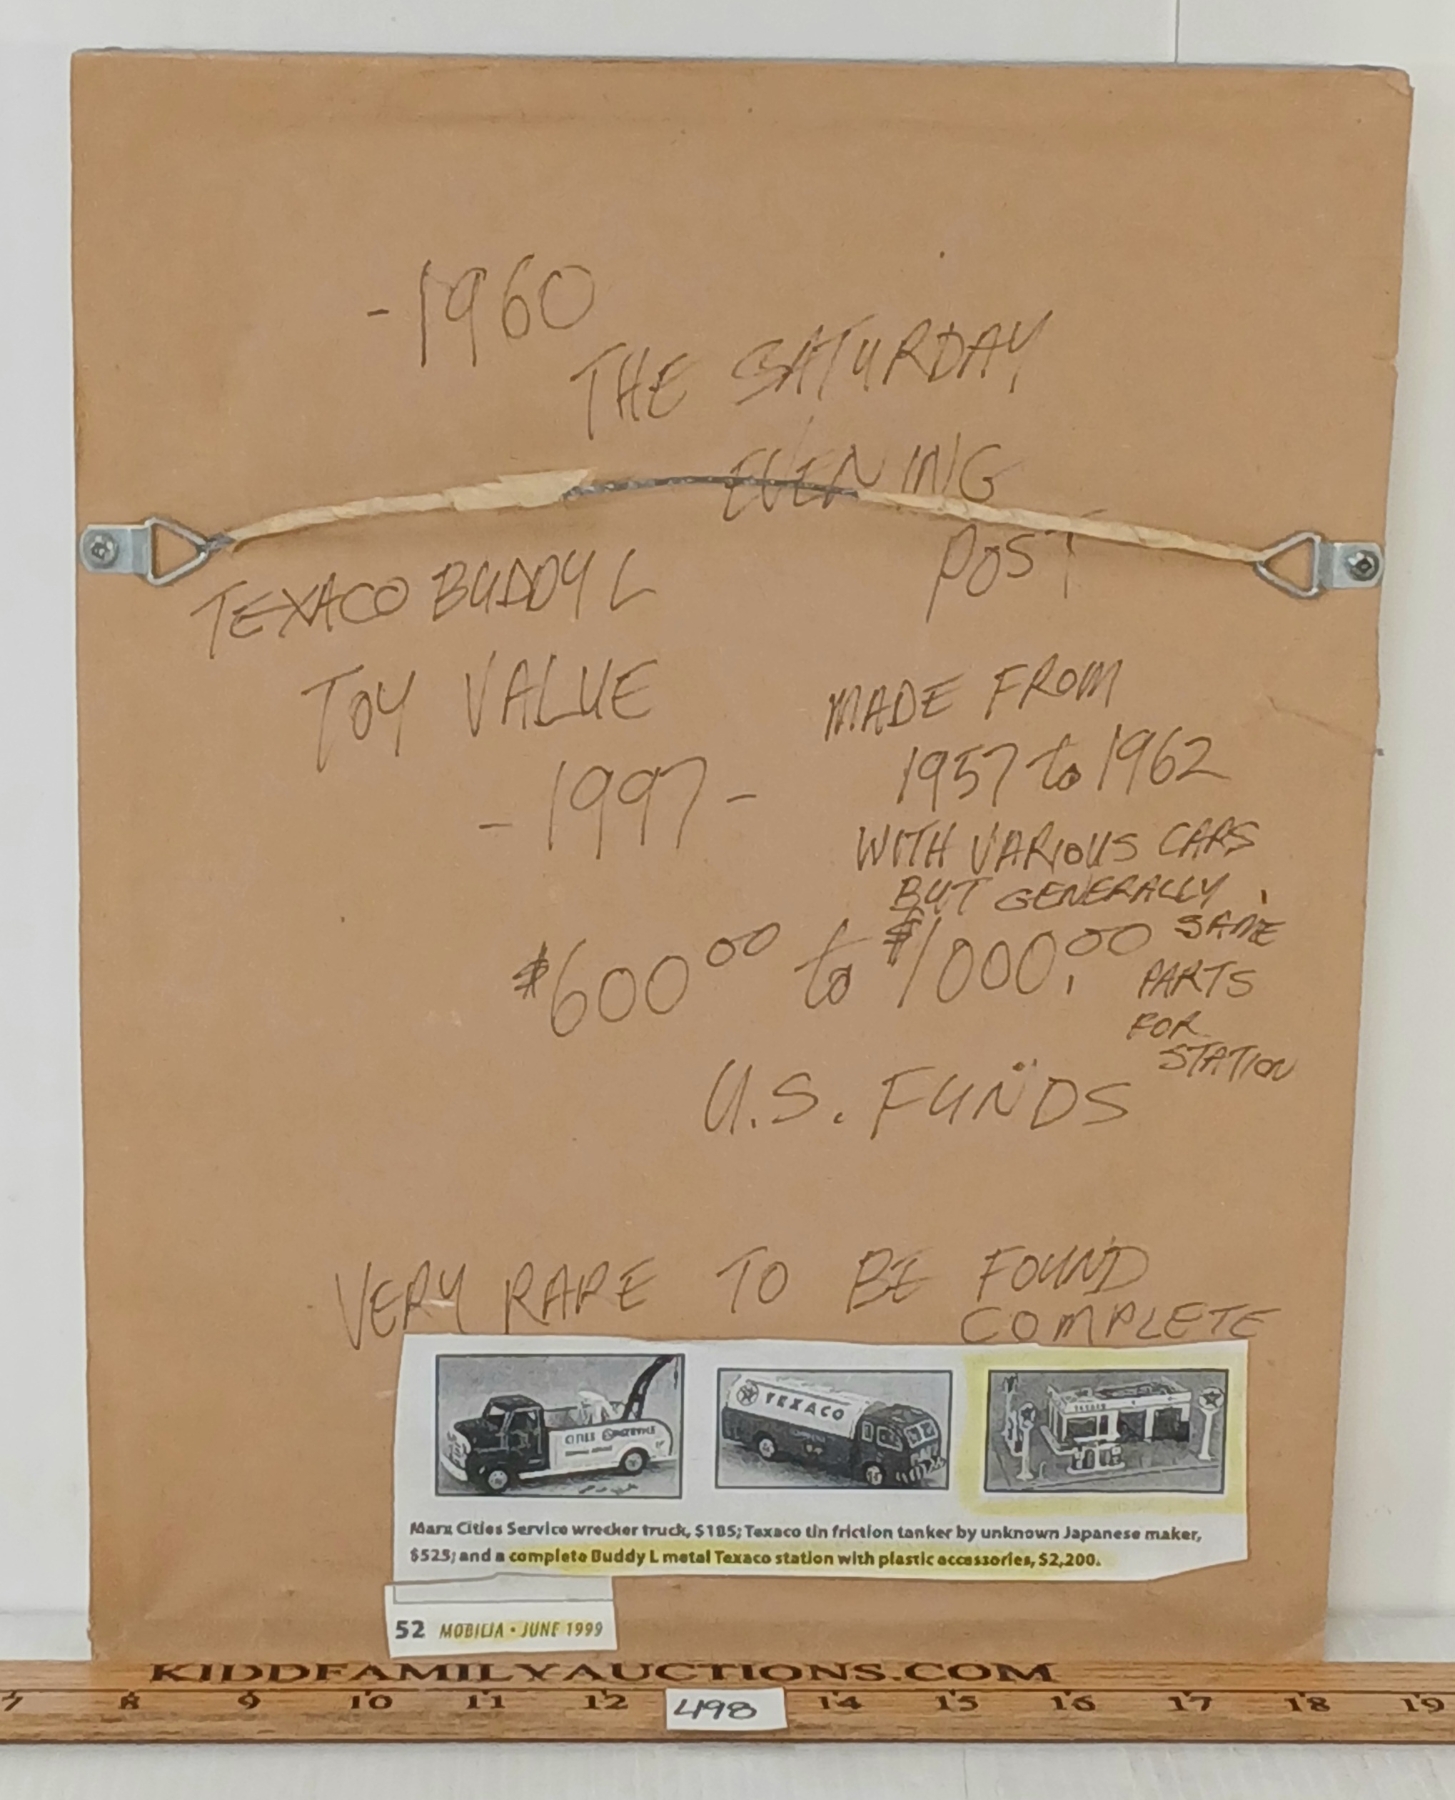 -1960
THE SATURDAY
EVENING
POST
TEXACO BUDDY L
TOY VALUE
-1997-
$600.00 to $1000.00
U.S. FUNDS
MADE FROM
1957 to 1962
WITH VARIOUS CARS
BUT GENERALLY
SAME
PARTS
FOR
STATION
VERY RARE TO BE FOUND
COMPLETE
CITIES SERVICE
TEXACO
TEXACO
Marx Cities Service wrecker truck, $185; Texaco tin friction tanker by unknown Japanese maker,
$525; and a complete Buddy L metal Texaco station with plastic accessories, $2,200.
52 MOBILIA • JUNE 1999
KIDDFAMILYAUCTIONS.COM
7 8 9 10 11 12 498 14 15 16 17 18 19